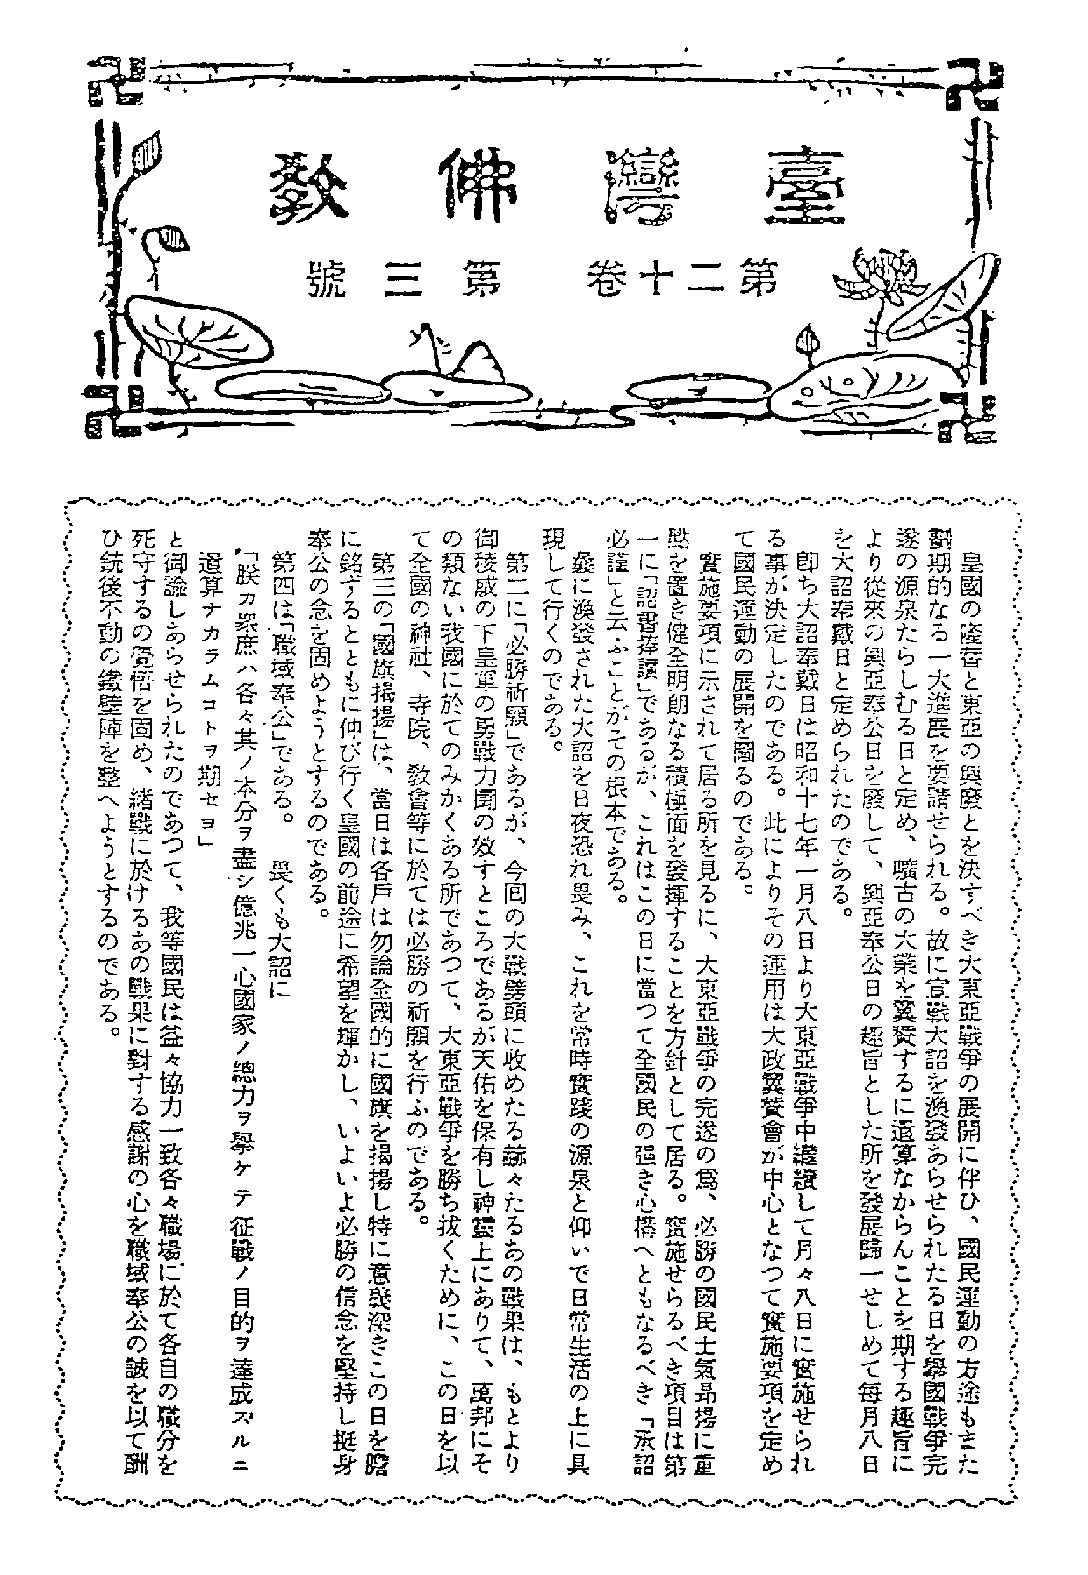 臺灣佛教
第二十卷 第三號
皇國の隆替と東亞の興廢とを決すべき大東亞戰爭の展開に伴ひ、國民運動の方途もまた
劃期的なる一大進展を要請せられる。故に宣戰大詔を渙發あらせられたる日を擧國戰爭完
遂の源泉たらしむる日と定め、曠古の大業を翼贊するに遺算なからんことを期する趣旨に
より從來の興亞奉公日を廢して、興亞奉公日の趣旨とした所を發展歸一せしめて每月八日
を大詔奉戴日と定められたのである。
卽ち大詔奉戴日は昭和十七年一月八日より大東亞戰爭中繼續して月々八日に實施せられ
る事が決定したのである。此によりその運用は大政翼贊會が中心となつて實施要項を定め
て國民運動の展開を圖るのである。
實施要項に示されて居る所を見るに、大東亞戰爭の完遂の爲、必勝の國民士氣昻揚に重
點を置き健全明朗なる積極面を發揮することを方針として居る。實施せらるべき項目は第
一に「詔書奉讀」であるが、これはこの日に當つて全國民の强き心構へともなるべき「承詔
必謹」と云ふことがその根本である。
曩に渙發された大詔を日夜恐れ畏み、これを常時實踐の源泉と仰いで日常生活の上に具
現して行くのである。
第二に「必勝祈願」であるが、今回の大戰劈頭に收めたる赫々たるあの戰果は、もとより
御稜威の下皇軍の勇戰力鬪の效すところであるが天佑を保有し神靈上にありて、萬邦にそ
の類ない我國に於てのみかくある所であつて、大東亞戰爭を勝ち拔くために、この日を以
て全國の神社、寺院、敎會等に於ては必勝の祈願を行ふのである。
第三の「國旗揭揚」は、當日は各戶は勿論全國的に國旗を揭揚し特に意義深きこの日を膽
に銘ずるとともに伸び行く皇國の前途に希望を輝かし、いよいよ必勝の信念を堅持し挺身
奉公の念を固めようとするのである。
第四は「職域奉公」である。 畏くも大詔に
「朕カ衆庶ハ各々其ノ本分ヲ盡シ億兆一心國家ノ總力ヲ擧ケテ征戰ノ目的ヲ達成スルニ
遺算ナカラムコトヲ期セヨ」
と御諭しあらせられたのであつて、我等國民は益々協力一致各々職場に於て各自の職分を
死守するの覺悟を固め、緖戰に於けるあの戰果に對する感謝の心を職域奉公の誠を以て酬
ひ銃後不動の鐵壁陣を整へようとするのである。